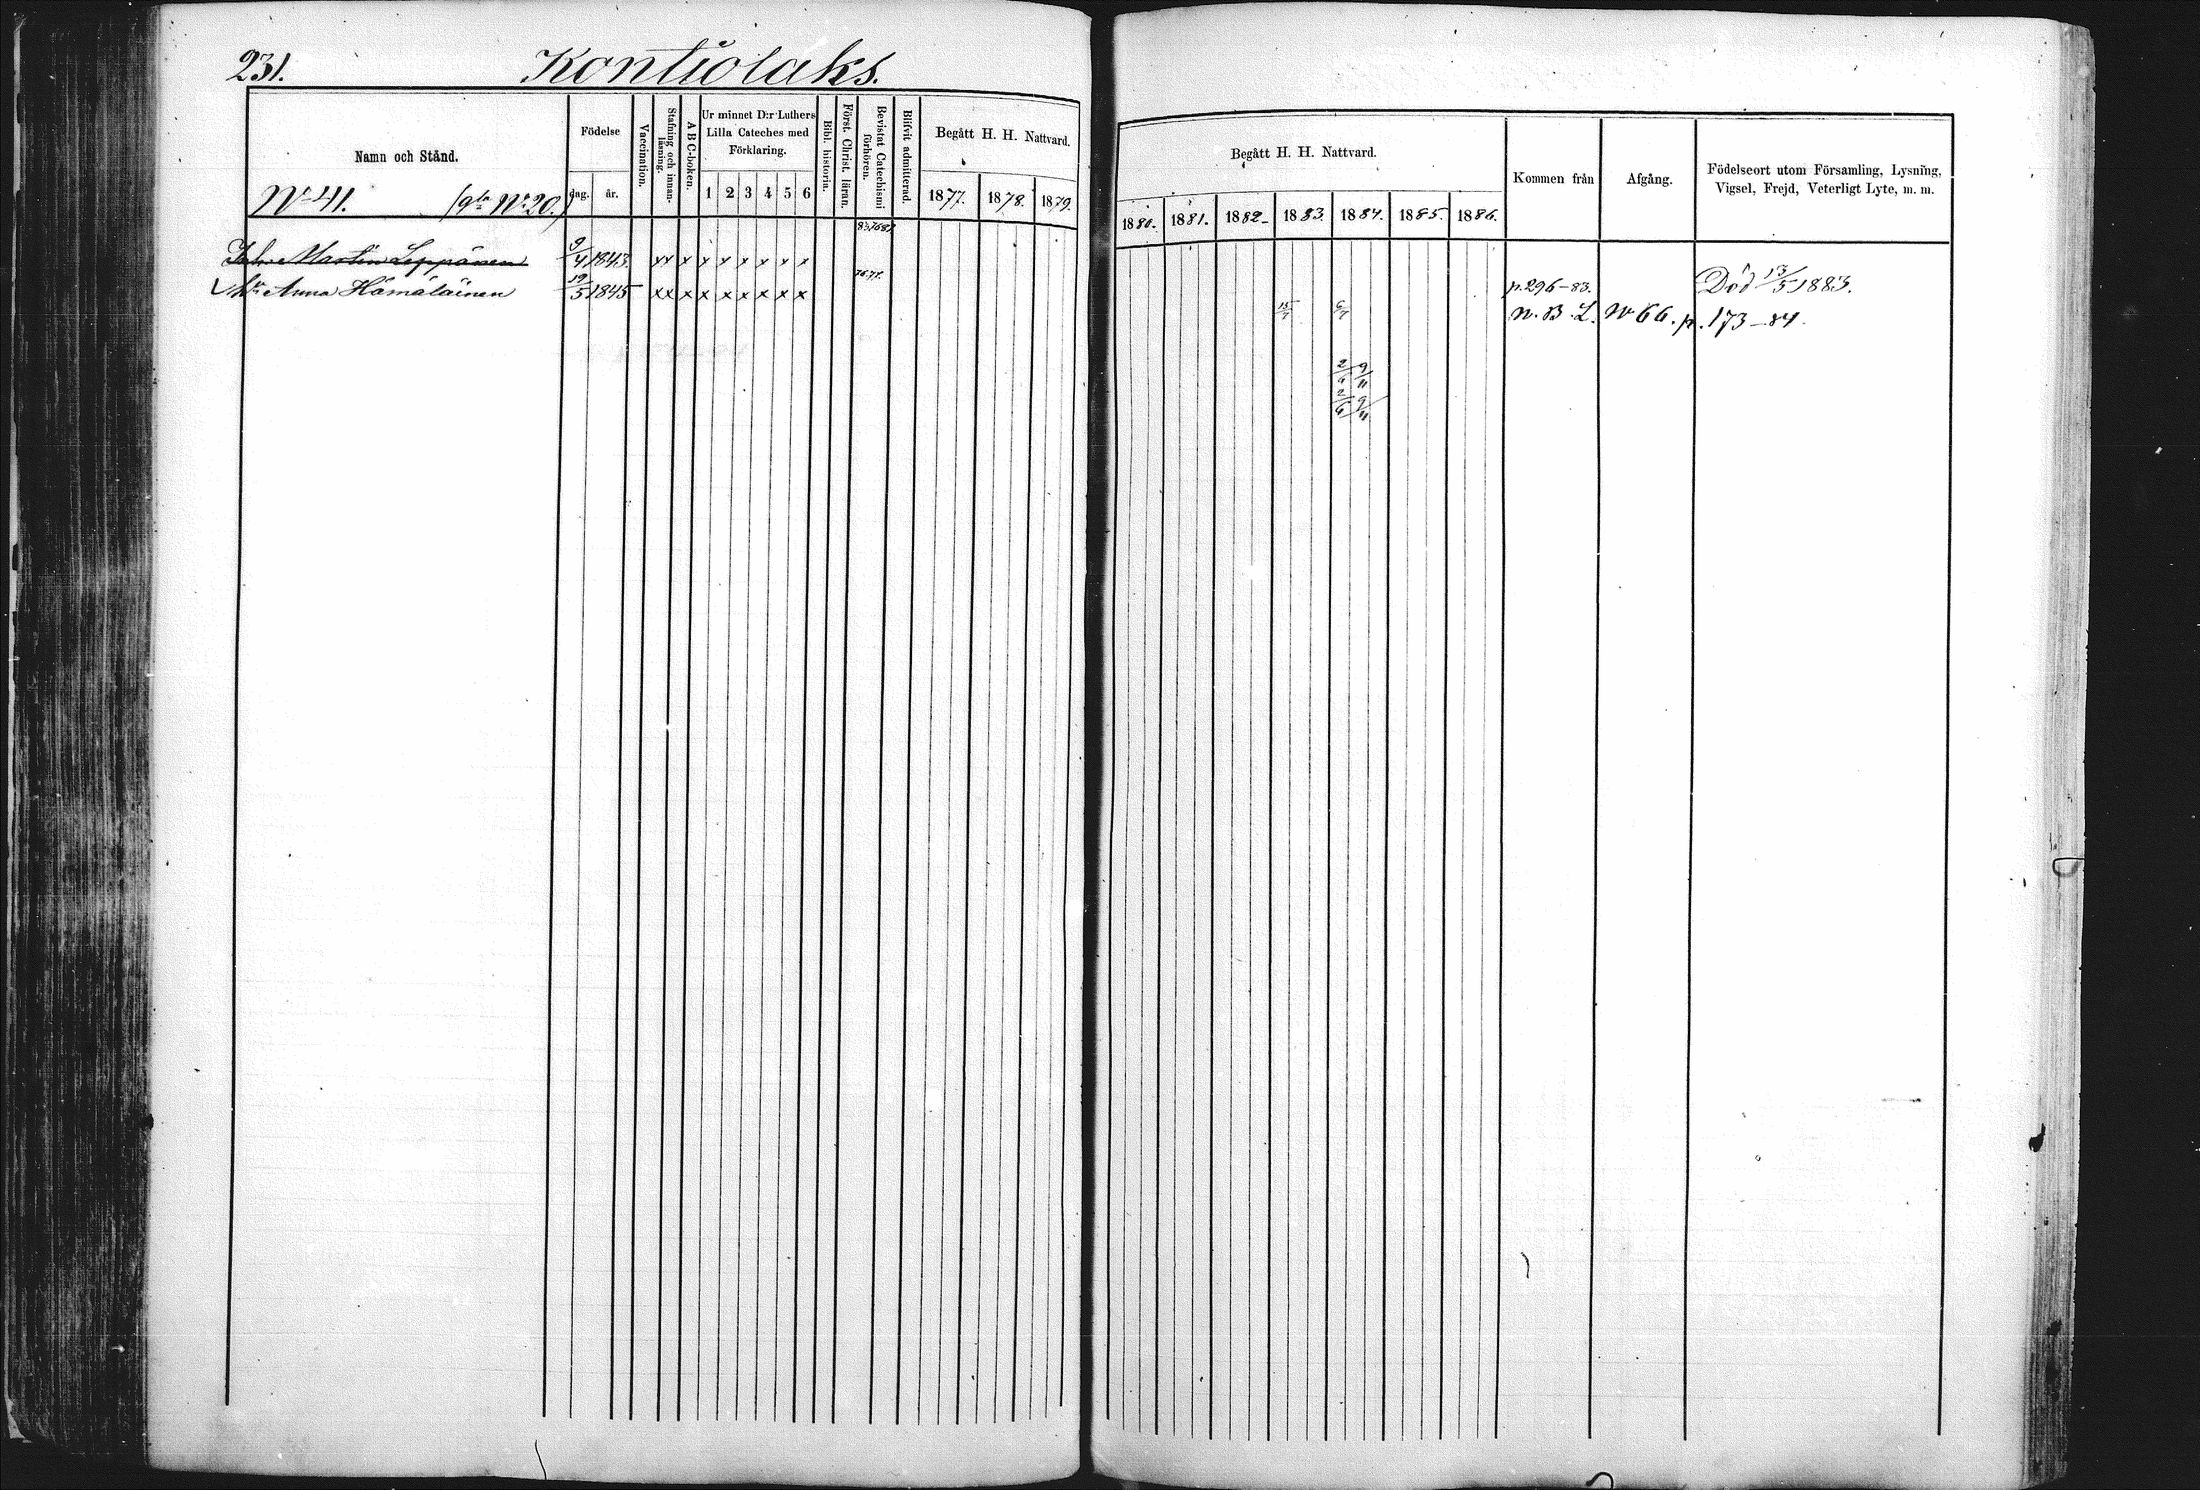 231.
Kontiolaks.
Namn och Stånd.
Nº 41.
Nº 20.)
Födelse
dag.
år.
Vaccination.
Stafning och innan-
läsning.
A B C-boken.
Ur minnet D:r Luthers
Lilla Cateches med
Förklaring.
1 2 3 4 5 6
Bibl. historia.
Först. Christ. läran.
Bevistat Catechismi
förhören.
Blifvit admitterad.
Begått H. H. Nattvard.
1877. 1878. 1879.
Martin Leppänen 9/4 1843. x x x x x x x x x
Anna Hämäläinen 19/5 1845 x x x x x x x x x
Begått H. H. Nattvard.
1880. 1881. 1882. 1883. 1884. 1885. 1886.
Kommen från
Afgång.
Födelseort utom Församling, Lysning,
Vigsel, Frejd, Veterligt Lyte, m. m.
p. 296-83. Död 13/5 1883.
N. B. L. Nº 66. p. 173-84.
2/6 9/11
2/6 9/11